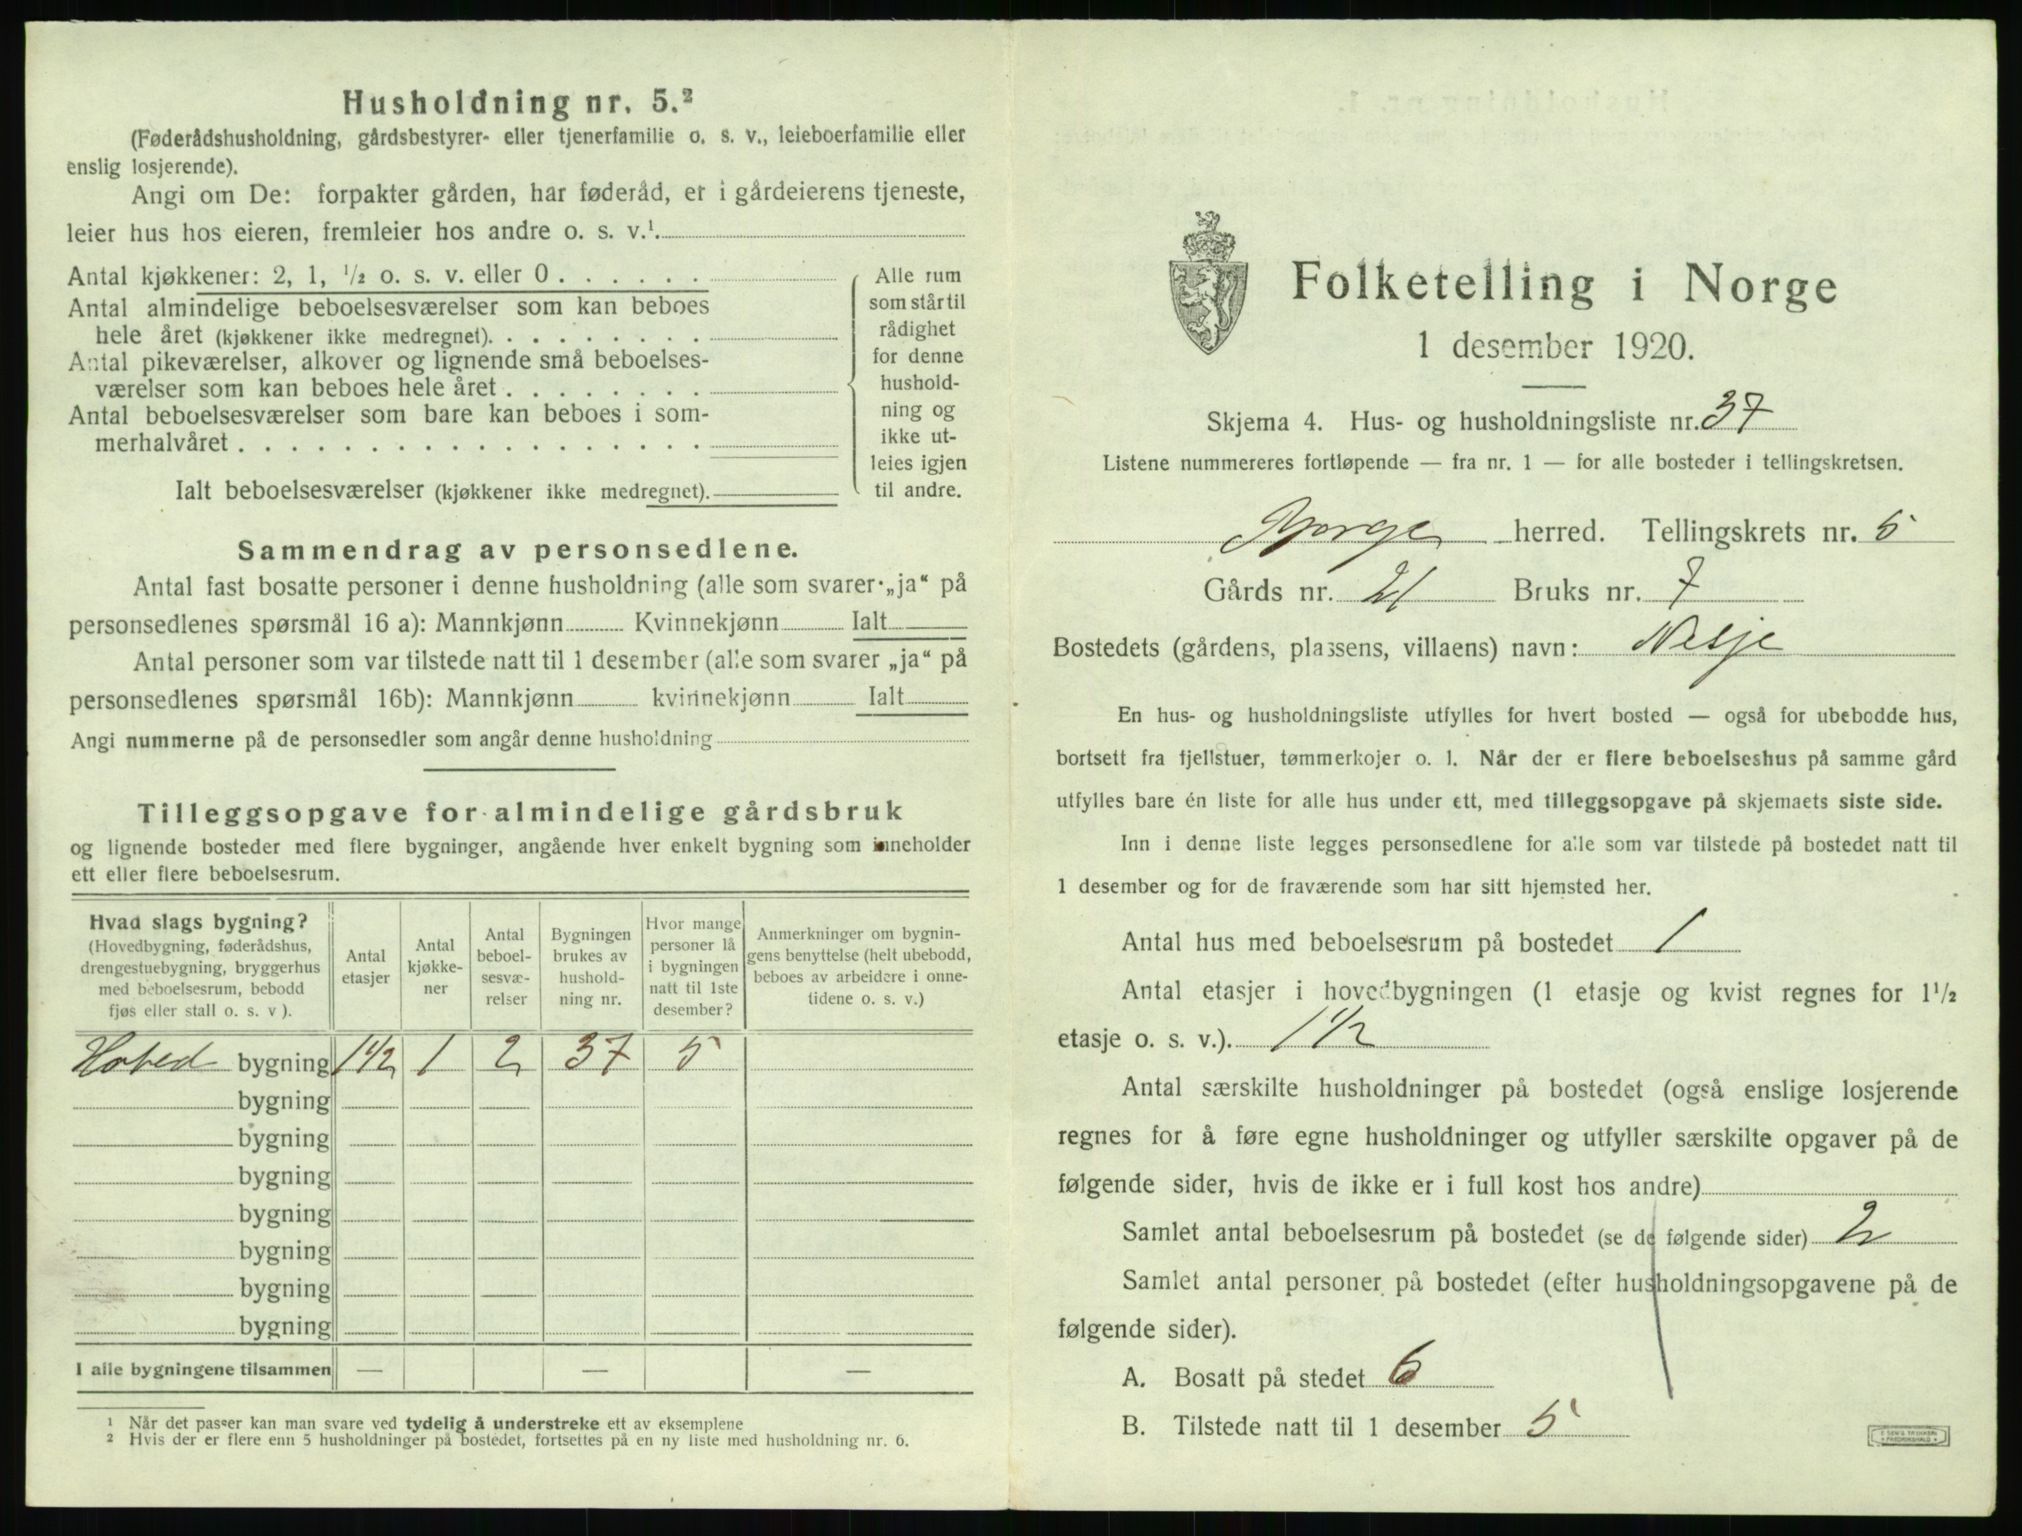 Husholdning nr. 5.²
(Føderådshusholdning, gårdsbestyrer- eller tjenerfamilie o. s. v., leieboerfamilie eller
enslig losjerende).
Angi om De: forpakter gården, har føderåd, er i gårdeierens tjeneste,
leier hus hos eieren, fremleier hos andre o. s. v.¹.
Antal kjøkkener: 2, 1, ½ o. s. v. eller 0 . . . . . .
Antal almindelige beboelsesværelser som kan beboes
hele året (kjøkkener ikke medregnet). . . . . . . . .
Antal pikeværelser, alkover og lignende små beboelses-
værelser som kan beboes hele året . . . . . . . .
Antal beboelsesværelser som bare kan beboes i som-
merhalvåret . . . . . . . . . . . . . . . . . .
Ialt beboelsesværelser (kjøkkener ikke medregnet).
Alle rum
som står til
rådighet
for denne
hushold-
ning og
ikke ut-
leies igjen
til andre.
Sammendrag av personsedlene.
Antal fast bosatte personer i denne husholdning (alle som svarer „ja“ på
personsedlenes spørsmål 16 a): Mannkjønn Kvinnekjønn Ialt
Antal personer som var tilstede natt til 1 desember (alle som svarer „ja“ på
personsedlenes spørsmål 16b): Mannkjønn kvinnekjønn Ialt
Angi nummerne på de personsedler som angår denne husholdning
Tilleggsopgave for almindelige gårdsbruk
og lignende bosteder med flere bygninger, angående hver enkelt bygning som inneholder
ett eller flere beboelsesrum.
Hvad slags bygning?
(Hovedbygning, føderådshus,
drengestuebygning, bryggerhus
med beboelsesrum, bebodd
fjøs eller stall o. s. v ).
Antal
etasjer
Antal
kjøkke-
ner
Antal
beboel-
sesvæ-
relser
Bygningen
brukes av
hushold-
ning nr.
Hvor mange
personer lå
i bygningen
natt til 1ste
desember?
Anmerkninger om bygnin-
gens benyttelse (helt ubebodd,
beboes av arbeidere i onne-
tidene o. s. v.)
Hoved bygning 1½ 1 2 37 5
bygning
bygning
bygning
bygning
bygning
bygning
bygning
I alle bygningene tilsammen — — —
¹ Når det passer kan man svare ved tydelig å understreke ett av eksemplene
² Hvis der er flere enn 5 husholdninger på bostedet, fortsettes på en ny liste med husholdning nr. 6.
Folketelling i Norge
1 desember 1920.
Skjema 4. Hus- og husholdningsliste nr. 37
Listene nummereres fortløpende — fra nr. 1 — for alle bosteder i tellingskretsen.
Borge herred. Tellingskrets nr. 5
Gårds nr. 21 Bruks nr. 7
Bostedets (gårdens, plassens, villaens) navn: Nesje
En hus- og husholdningsliste utfylles for hvert bosted — også for ubebodde hus,
bortsett fra fjellstuer, tømmerkojer o. l. Når der er flere beboelseshus på samme gård
utfylles bare én liste for alle hus under ett, med tilleggsopgave på skjemaets siste side.
Inn i denne liste legges personsedlene for alle som var tilstede på bostedet natt til
1 desember og for de fraværende som har sitt hjemsted her.
Antal hus med beboelsesrum på bostedet 1
Antal etasjer i hovedbygningen (1 etasje og kvist regnes for 1½
etasje o. s. v.). 1½
Antal særskilte husholdninger på bostedet (også enslige losjerende
regnes for å føre egne husholdninger og utfyller særskilte opgaver på de
følgende sider, hvis de ikke er i full kost hos andre)
Samlet antal beboelsesrum på bostedet (se de følgende sider) 2
Samlet antal personer på bostedet (efter husholdningsopgavene på de
følgende sider).
A. Bosatt på stedet 6
B. Tilstede natt til 1 desember 5